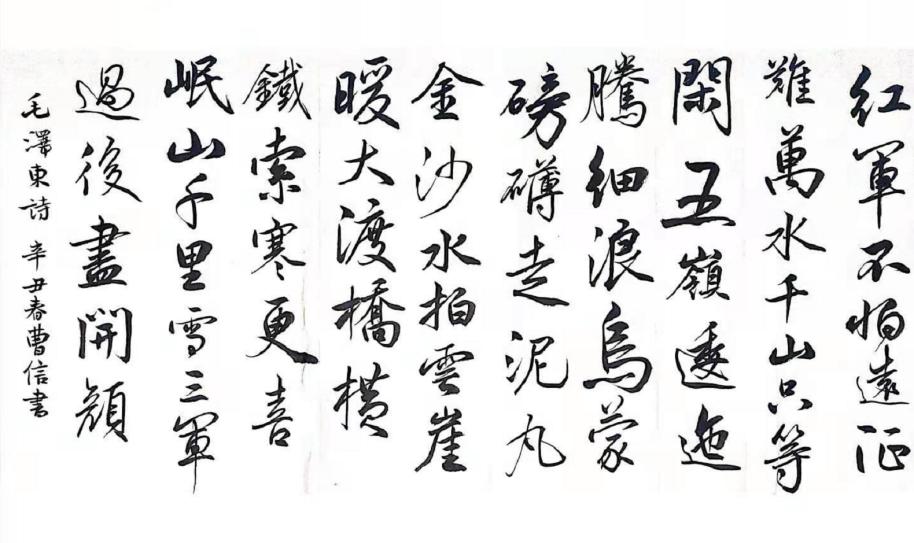 紅軍不怕遠征
難萬水千山只等
閑五嶺逶迤
騰細浪烏蒙
磅礴走泥丸
金沙水拍雲崖
暖大渡橋橫
鐵索寒更喜
岷山千里雪三軍
過後盡開顏
毛澤東詩 辛丑春曹信書